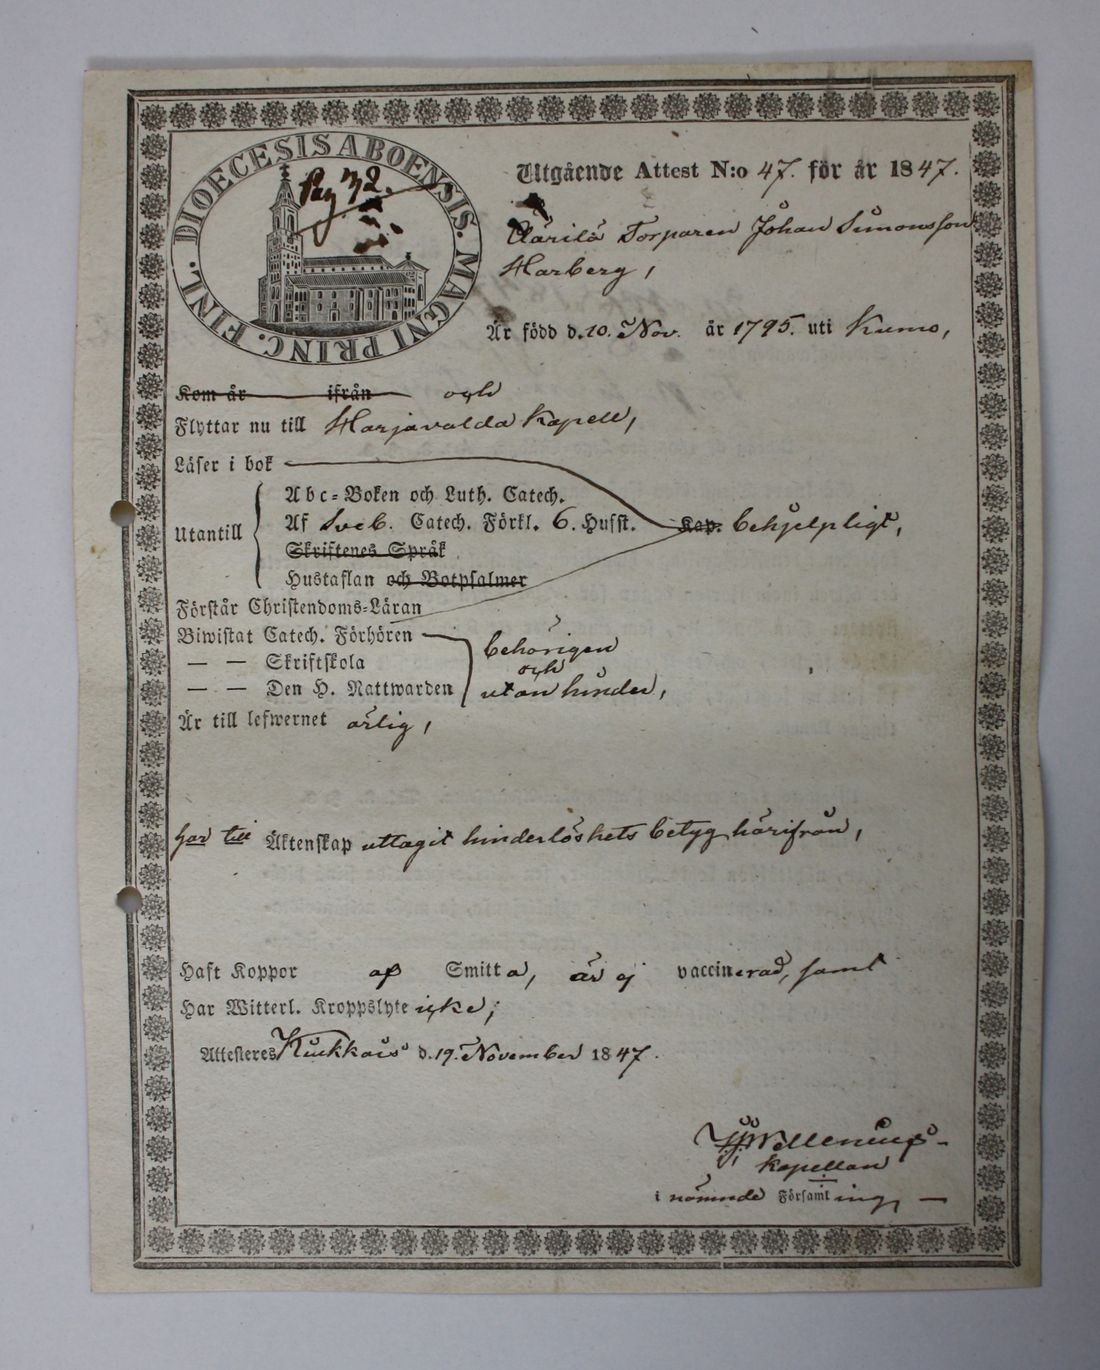 DIOECESIS ABOENSIS. MAGNI PRINC. FINL.
Pag 32.
Utgående Attest N:o 47. för år 1847.
Torparen Johan Simonsson
Harberg,
Är född d. 10. Nov. år 1795. uti Kumo,
Kom år ifrån och
Flyttar nu till Harjavalda Kapell,
Läser i bok
Utantill
Abc-Boken och Luth. Catech.
Af Sveb. Catech. Förkl. 6. Husst. Kap. behjelpligt,
Skriftenes Språk
Hustaflan och Botpsalmer
Förstår Christendoms-Läran
Biwistat Catech. Förhören behörigen
— — Skriftskola och
— — Den H. Nattwarden utan hinder,
Är till lefwernet ärlig,
har till Äktenskap uttagit hinderlöshets betyg härifrån,
Haft Koppor af Smitta, är ej vaccinerad, samt
Har Witterl. Kroppslyte icke;
Attesteres d. 19. November 1847.
Kapellan
i nämnde Församling,